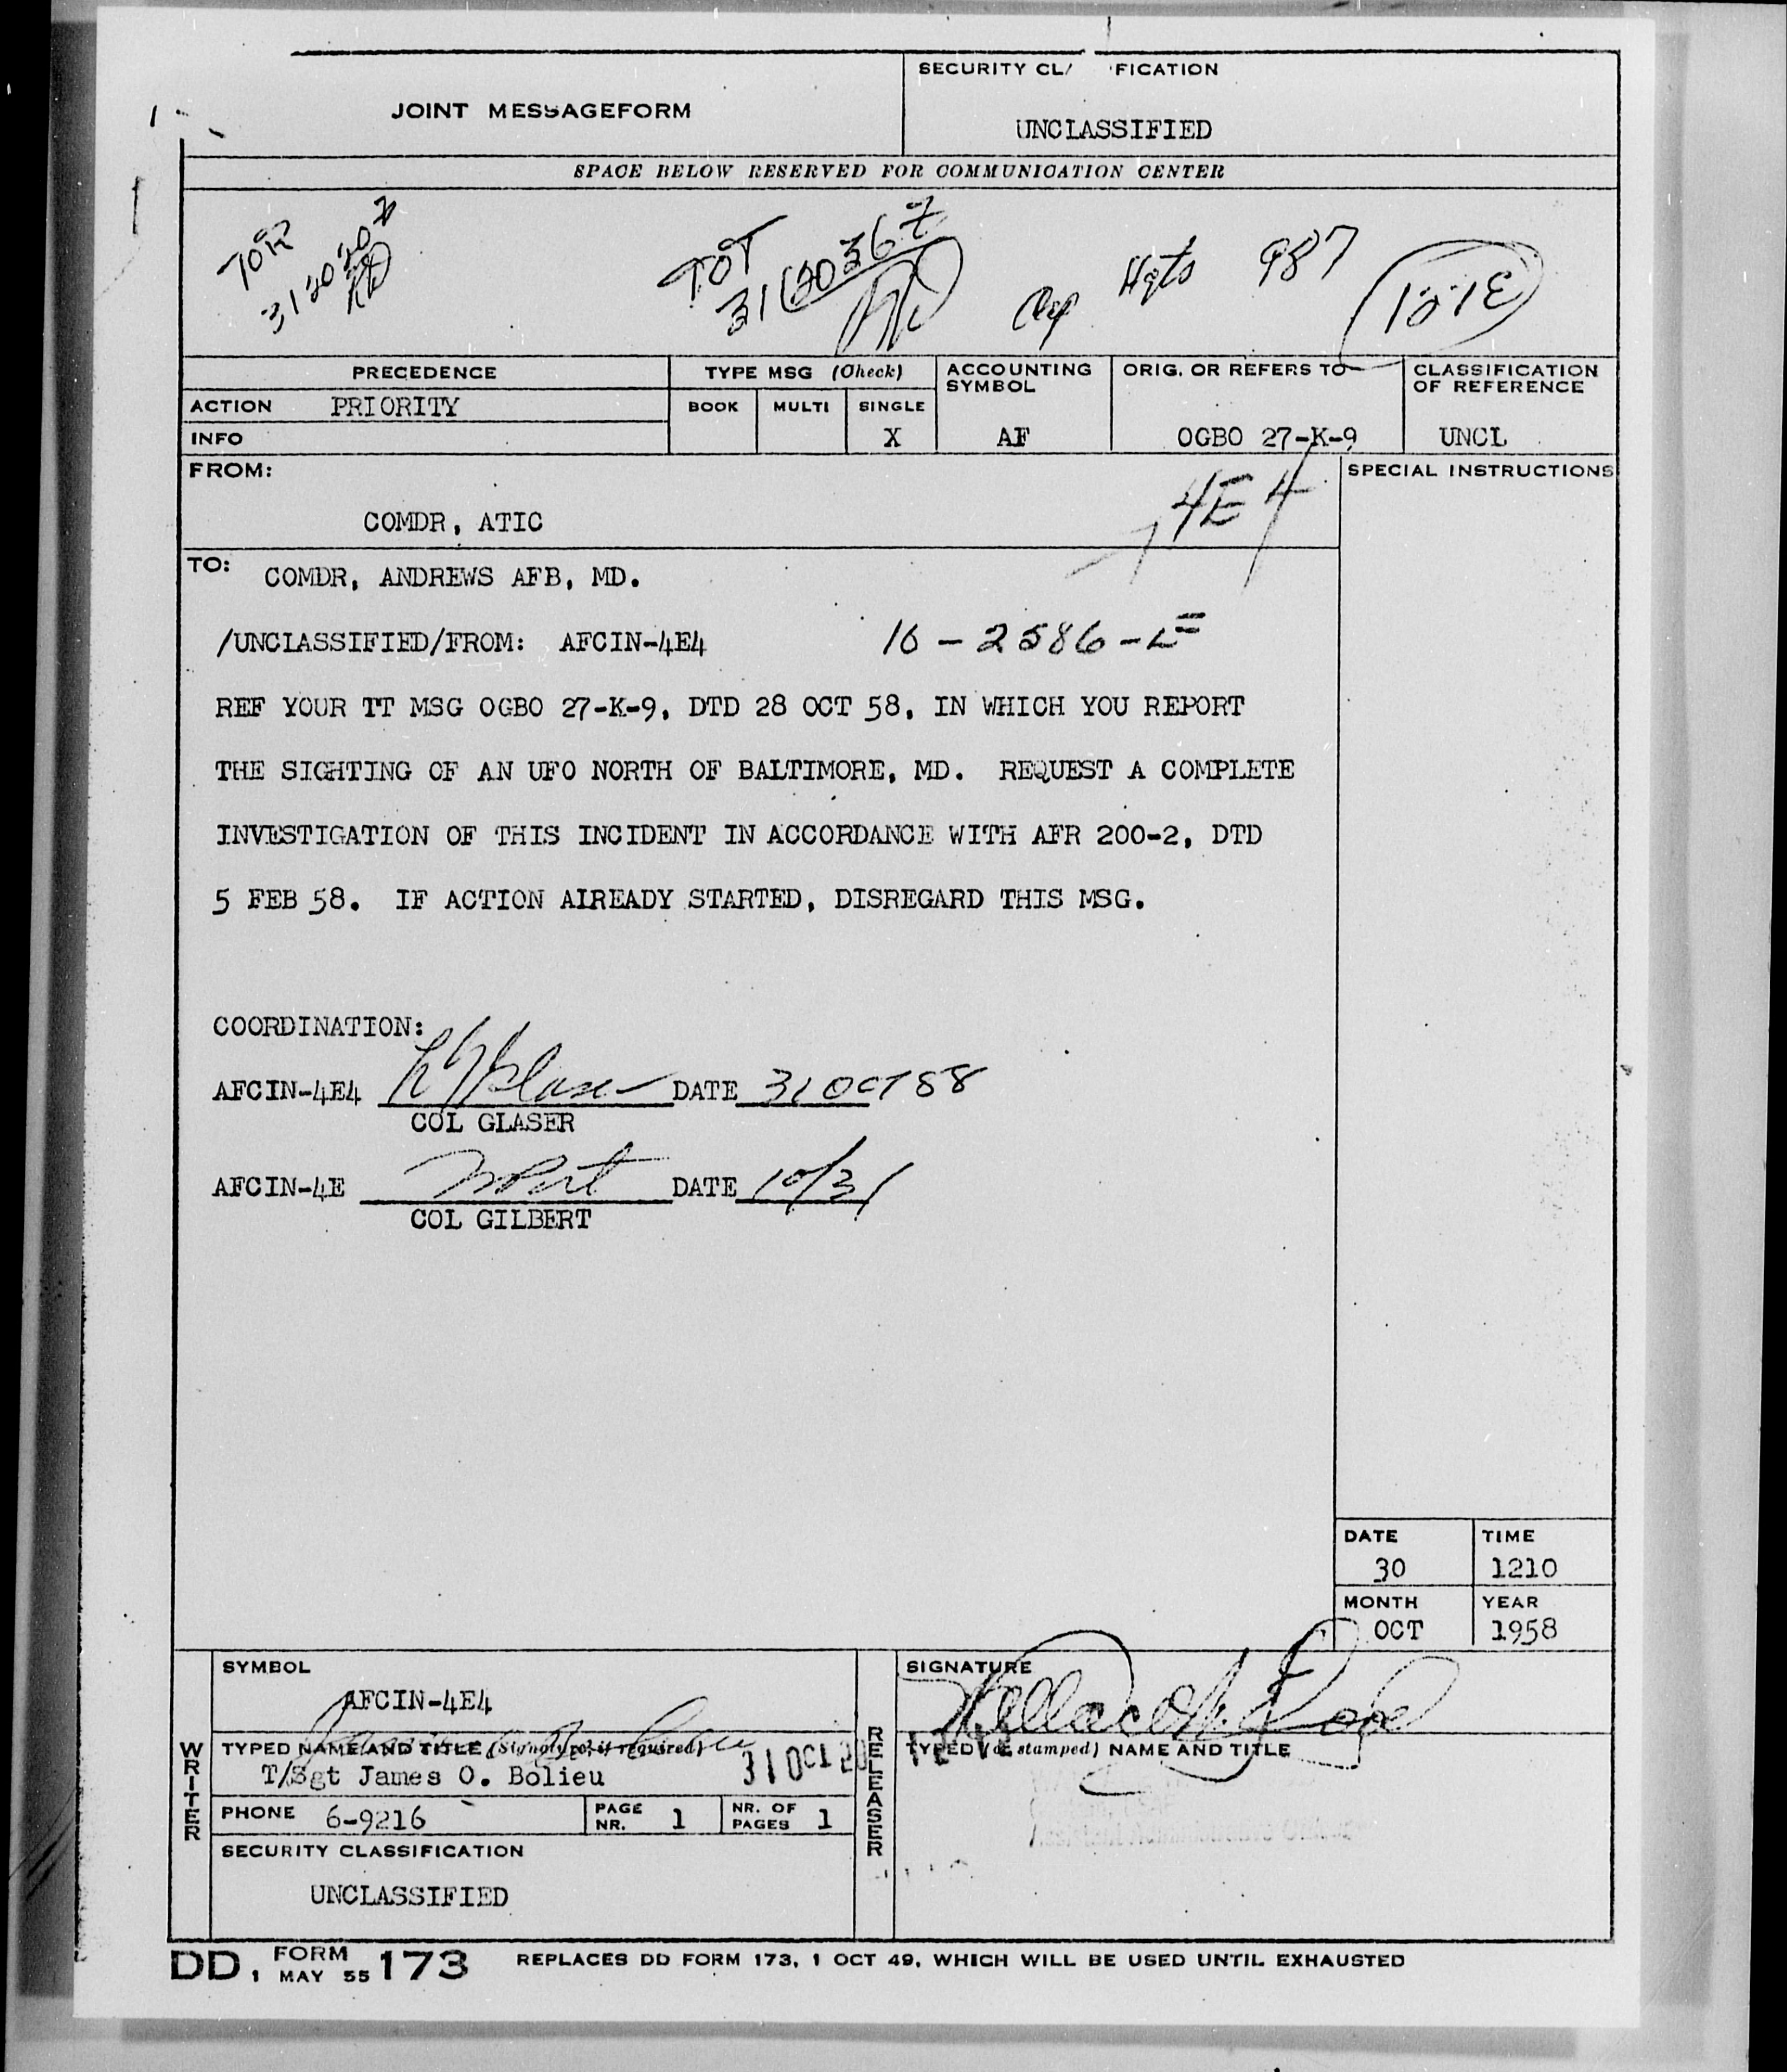 JOINT MESSAGEFORM
SECURITY CL/ FICATION
UNCLASSIFIED
SPACE BELOW RESERVED FOR COMMUNICATION CENTER
TOR
312020Z
TOT
312036Z
Hqts 987
PRECEDENCE
TYPE MSG (Check)
ACCOUNTING SYMBOL
ORIG. OR REFERS TO
CLASSIFICATION OF REFERENCE
ACTION PRIORITY
BOOK MULTI SINGLE
INFO
X AF OGBO 27-K-9 UNCL
FROM:
SPECIAL INSTRUCTIONS
4E4
COMDR, ATIC
TO: COMDR, ANDREWS AFB, MD.
/UNCLASSIFIED/FROM: AFCIN-4E4 10-2586-E
REF YOUR TT MSG OGBO 27-K-9, DTD 28 OCT 58, IN WHICH YOU REPORT
THE SIGHTING OF AN UFO NORTH OF BALTIMORE, MD. REQUEST A COMPLETE
INVESTIGATION OF THIS INCIDENT IN ACCORDANCE WITH AFR 200-2, DTD
5 FEB 58. IF ACTION ALREADY STARTED, DISREGARD THIS MSG.
COORDINATION:
AFCIN-4E4 DATE 31 OCT 58
COL GLASER
AFCIN-4E DATE 10/31
COL GILBERT
DATE 30 TIME 1210
MONTH OCT YEAR 1958
WRITER
SYMBOL
AFCIN-4E4
TYPED NAME AND TITLE (Signature, if required)
T/Sgt James O. Bolieu
31 OCT 20
PHONE 6-9216 PAGE NR. 1 NR. OF PAGES 1
SECURITY CLASSIFICATION
UNCLASSIFIED
RELEASER
SIGNATURE
TYPED (or stamped) NAME AND TITLE
DD, FORM 1 MAY 55 173 REPLACES DD FORM 173, 1 OCT 49, WHICH WILL BE USED UNTIL EXHAUSTED